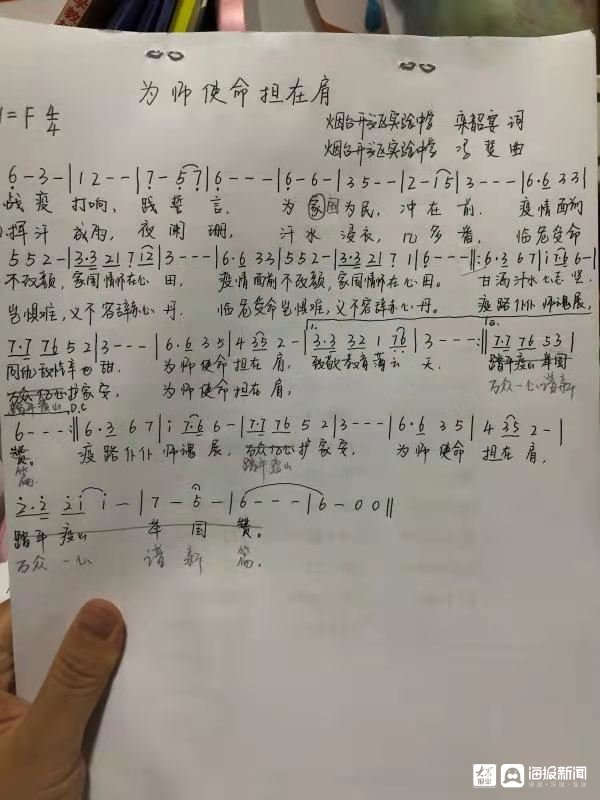 为师使命担在肩
1=F 4/4
烟台开发区实验中学 栾韶宴 词
烟台开发区实验中学 冯斐 曲
6-3-|12--|7-57|6---|6-6-|35--|2-15|3---|6·633|
战疫打响，践誓言。为家国为民，冲在前。疫情面前
挥汗成雨，夜阑珊，汗水浸衣，几多番，临危受命
552-|3·32171̇2|3---|6·633|552-|3·32171|6---‖:6·367|i7·66-|
不改颜，家国情怀在心田，疫情面前不改颜，家国情怀在心田。甘洒汗水心志坚，
岂惧难，义不容辞赤心丹。临危受命岂惧难，义不容辞赤心丹。疫路仆仆师魂展，
7·77652|3---|6·635|4352-|3·332176|3---:‖7·77653|
为师使命担在肩，天。踏平疫山举国
万众一心护家安，为师使命担在肩，万众一心谱新
踏平疫山 D.C
6---:‖6·367|i7·66-|7·77652|3---|6·635|4352-|
赞。疫路仆仆师魂展，万众一心护家安，为师使命担在肩，
篇 踏平疫山
2·22ii-|7-5-|6---|6-00‖
踏平疫山举国赞。
万众一心谱新篇.
大众报业
海报新闻